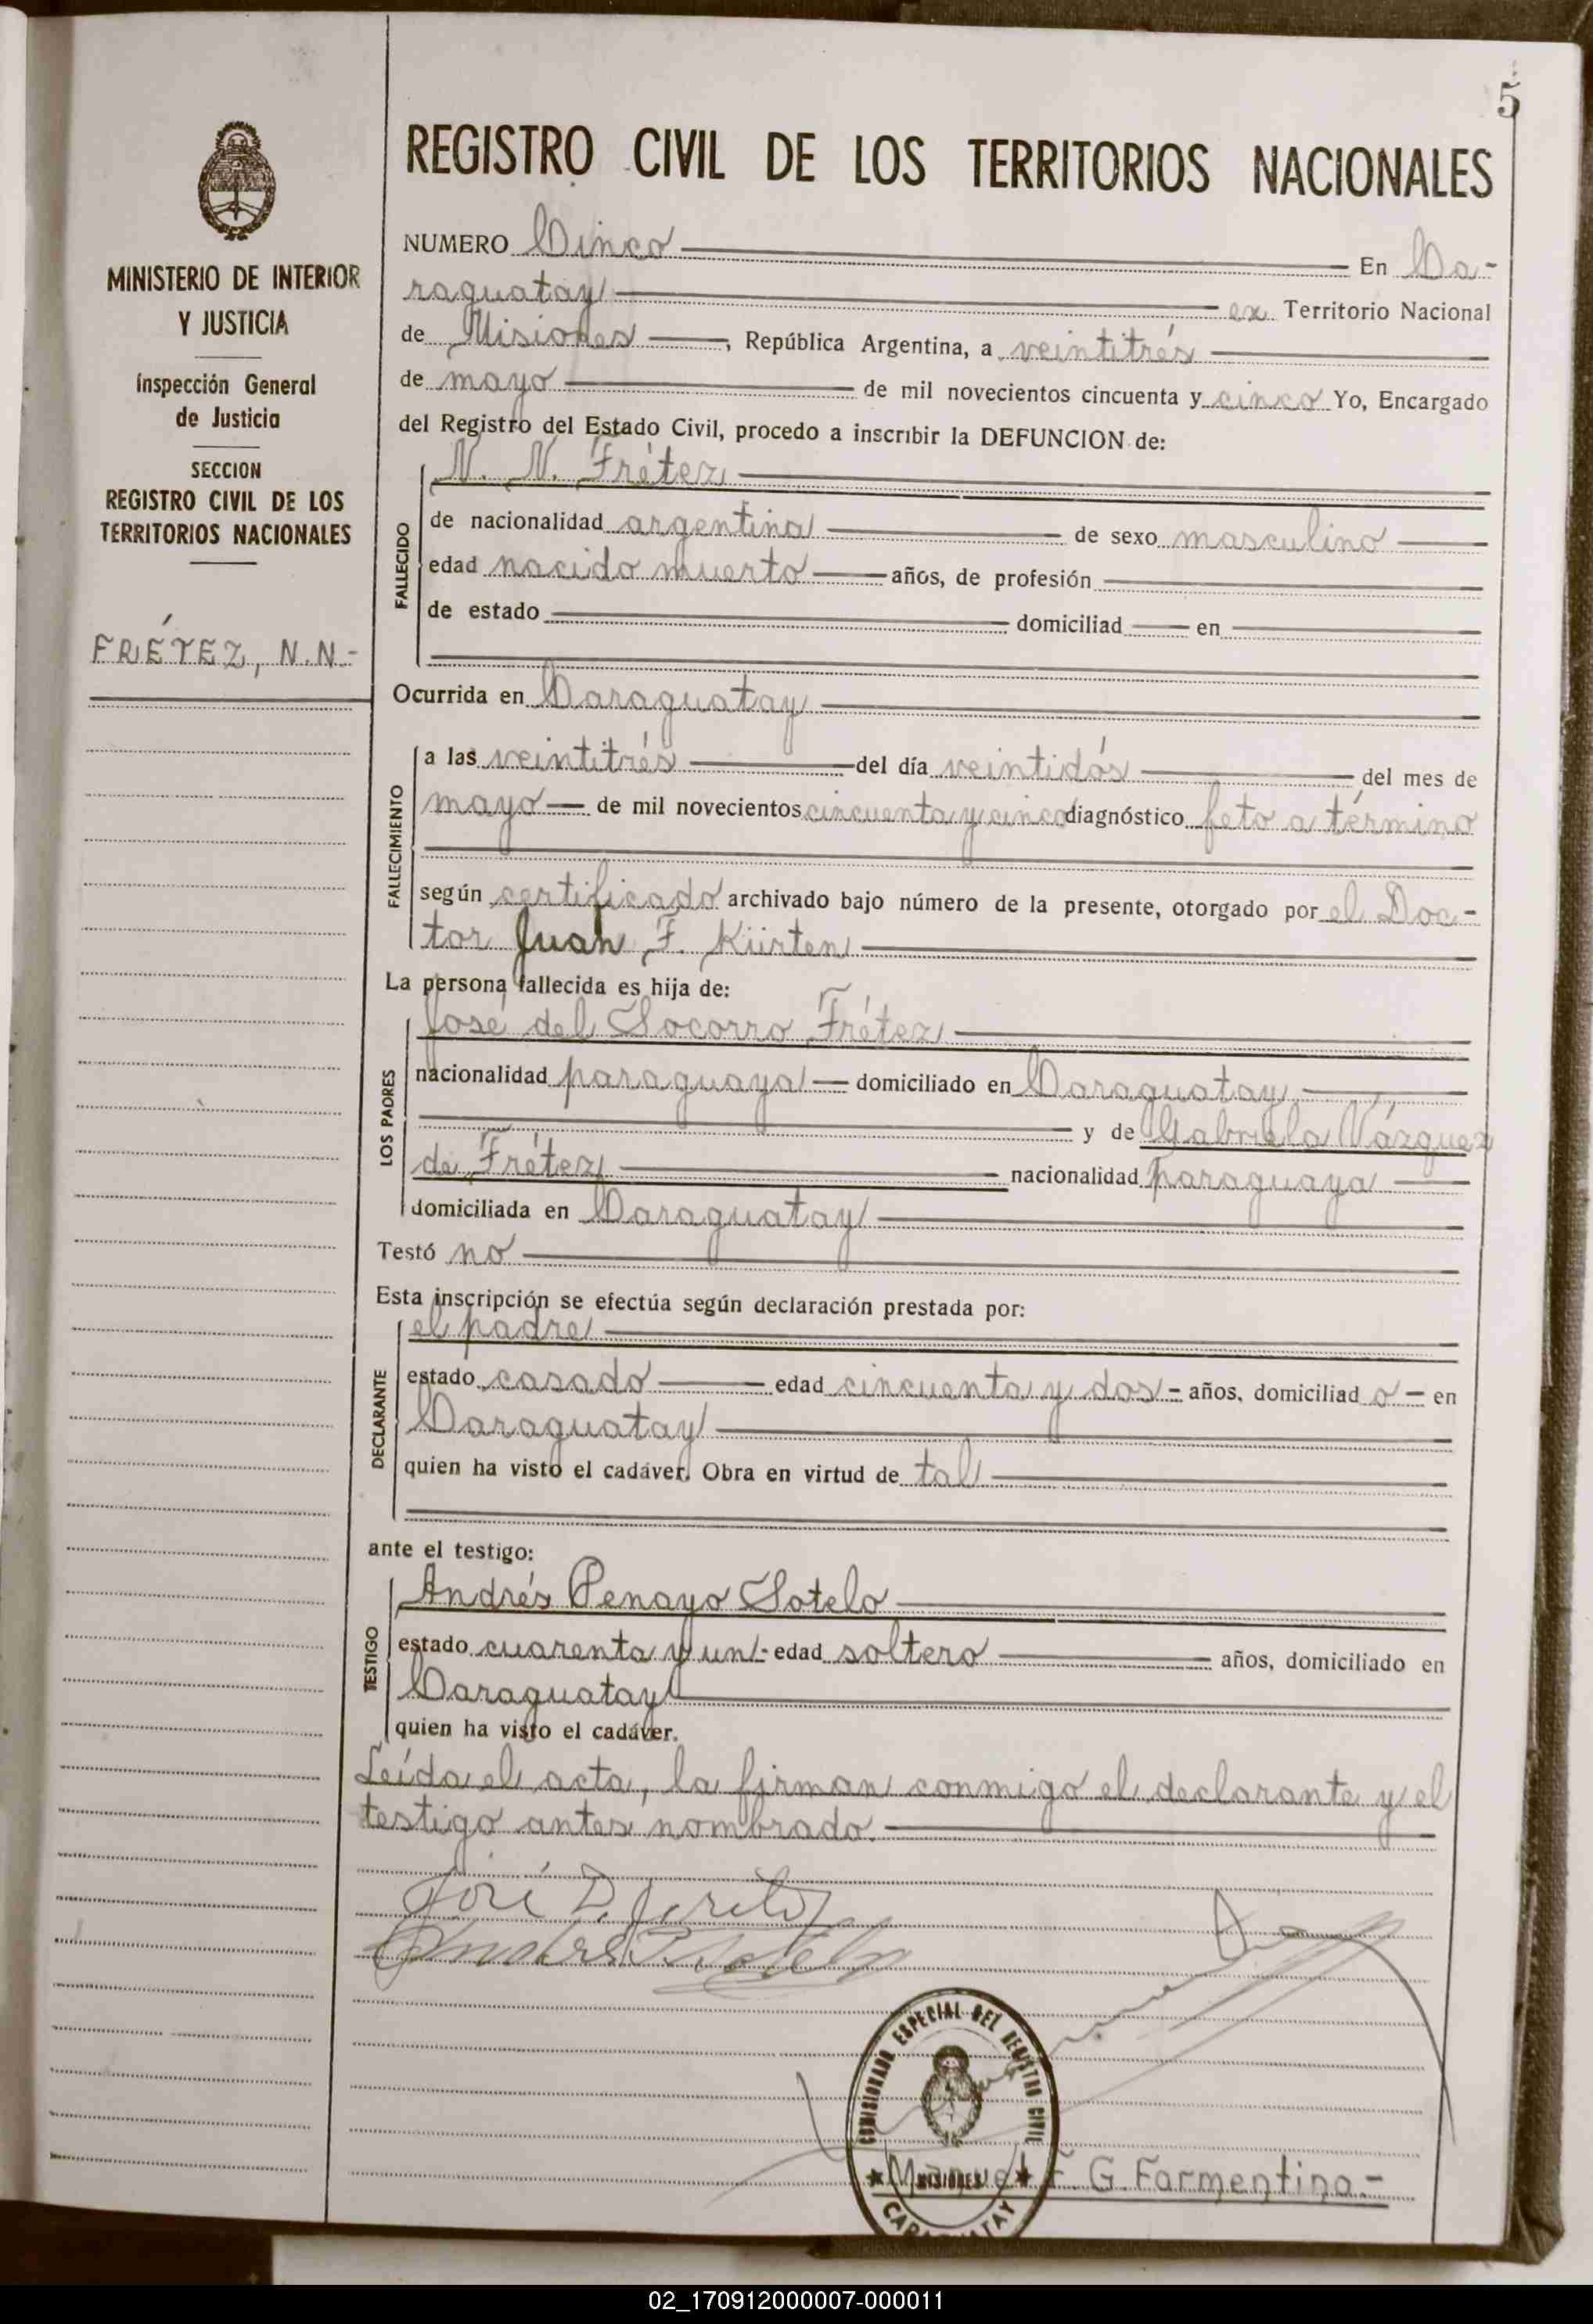 5
REGISTRO CIVIL DE LOS TERRITORIOS NACIONALES
MINISTERIO DE INTERIOR
Y JUSTICIA
Inspección General
de Justicia
SECCION
REGISTRO CIVIL DE LOS
TERRITORIOS NACIONALES
FRÉTEZ, N.N.-
NUMERO Cinco En Ca-
raguatay ex Territorio Nacional
de Misiones, República Argentina, a veintitrés
de mayo de mil novecientos cincuenta y cinco Yo, Encargado
del Registro del Estado Civil, procedo a inscribir la DEFUNCION de:
N. N. Frétez
FALLECIDO
de nacionalidad argentina de sexo masculino
edad nacido muerto años, de profesión
de estado domiciliad en
Ocurrida en Caraguatay
FALLECIMIENTO
a las veintitrés del día veintidós del mes de
mayo de mil novecientos cincuenta y cinco diagnóstico feto a término
según certificado archivado bajo número de la presente, otorgado por el Doc-
tor Juan F. Kürten
La persona fallecida es hija de:
LOS PADRES
José del Socorro Frétez
nacionalidad paraguaya domiciliado en Caraguatay
y de Gabriela Vázquez
de Frétez nacionalidad paraguaya
domiciliada en Caraguatay
Testó no
Esta inscripción se efectúa según declaración prestada por:
DECLARANTE
el padre
estado casado edad cincuenta y dos - años, domiciliad o - en
Caraguatay
quien ha visto el cadáver. Obra en virtud de tal
ante el testigo:
TESTIGO
Andrés Penayo Sotelo
estado cuarenta y un - edad soltero años, domiciliado en
Caraguatay
quien ha visto el cadáver.
Leída el acta, la firman conmigo el declarante y el
testigo antes nombrado.
COMISIONADO ESPECIAL DEL REGISTRO CIVIL
MISIONES
CARAGUATAY
Manuel F. G. Formentino.-
02_170912000007-000011